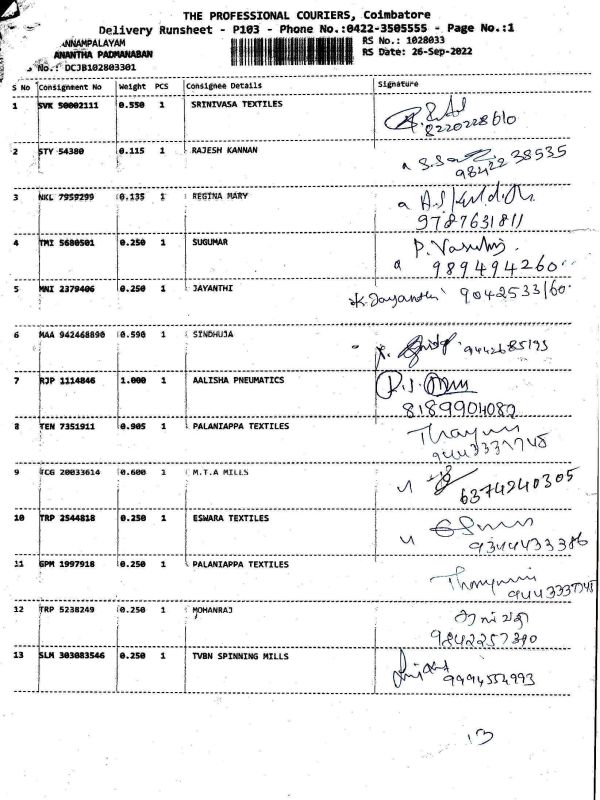 THE PROFESSIONAL COURIERS, Coimbatore
Delivery Runsheet - P103 - Phone No.:0422-3505555 - Page No.:1
ANNAMPALAYAM RS No.: 1028033
ANANTHA PADMANABAN RS Date: 26-Sep-2022
No.: DCJB102803301
S No Consignment No Weight PCS Consignee Details Signature
1 SVK 50002111 0.550 1 SRINIVASA TEXTILES
8220228610
2 STY 54380 0.115 1 RAJESH KANNAN
98422 38535
3 NKL 7959299 0.135 1 REGINA MARY
9787631811
4 TMI 5680501 0.250 1 SUGUMAR
989494260
5 MNI 2379406 0.250 1 JAYANTHI K. Jayanthi 9042533160
6 MAA 942468890 0.590 1 SINDHUJA 9442685193
7 RJP 1114846 1.000 1 AALISHA PNEUMATICS
8189904082
8 TEN 7351911 0.905 1 PALANIAPPA TEXTILES
9443337748
9 TCG 20033614 0.600 1 M.T.A MILLS
6374240305
10 TRP 2544818 0.250 1 ESWARA TEXTILES
9344433386
11 GPM 1997918 0.250 1 PALANIAPPA TEXTILES
9443337748
12 TRP 5238249 0.250 1 MOHANRAJ
9842257390
13 SLM 303083546 0.250 1 TVBN SPINNING MILLS
9994554993
13